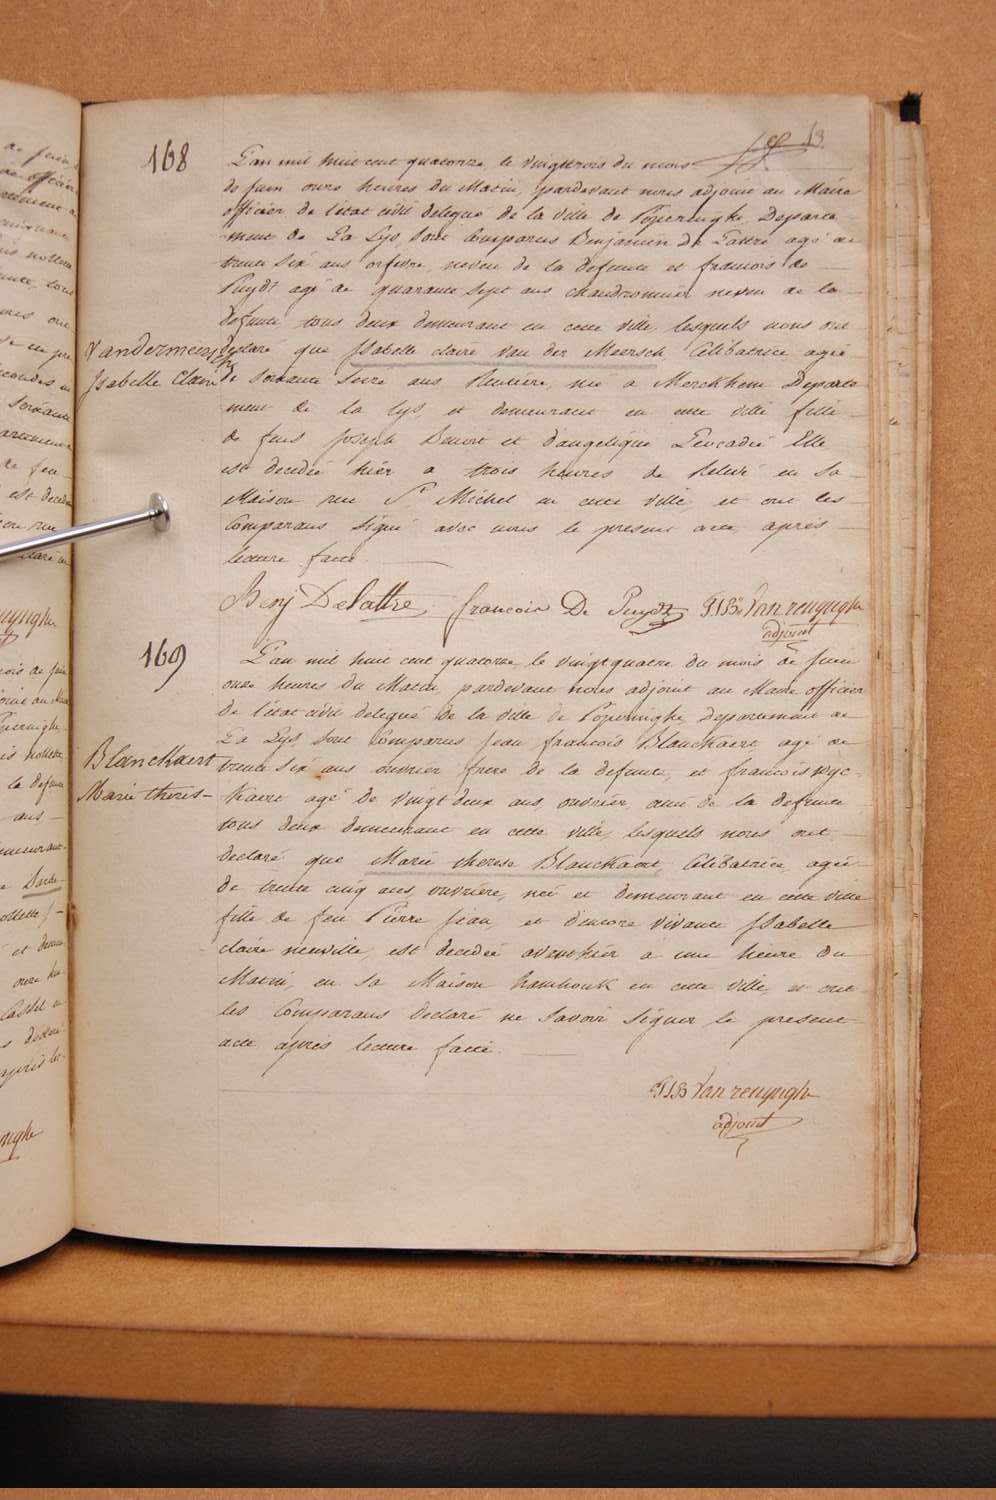 13
168
L'an mil huit cent quatorze le vingttrois du mois
de juin onze heures du Matin, pardevant nous adjoint au Maire
officier de l'état civil delegué de la ville de Poperinghe Departe-
ment de La Lys, sont Comparus Benjamin De Lattre agé de
trente six ans orfevre, neveu de la defunte et francois de
Puydt agé de quarante sept ans chaudronnier neveu de la
defunte tous deux demeurant en cette ville lesquels nous ont
Vandermeersch
Isabelle Claire
declaré que Isabelle claire Van der Meersch, Celibatrice agée
de Soixante Seize ans Rentiere, née a Merckhem Departe
ment de la Lys, et demeurant en cette ville fille
de feus Joseph Benoit et d'angelique Leocadie Elle
est decedée hier a trois heures de Relevé en sa
Maison rue St Michel en cette ville, et ont les
Comparans Signé avec nous le present acte, après
lecture faite.
Benj Delattre francois De Puydt PJBte Vanrenynghe
adjoint
169
L'an mil huit cent quatorze, le vingtquatre du mois de Juin
onze heures du Matin, pardevant nous adjoint au Maire officier
de l'état civil delegué de la ville de Poperinghe, departement de
La Lys, sont Comparus Jean francois Blanckaert, agé de
Blanckaert
Marie theres-
trente six ans ouvrier frere de la defunte, et francois wyc-
kaert agé de vingt deux ans, ouvrier, ami de la defunte
tous deux demeurant en cette ville, lesquels nous ont
declaré que Marie therese Blanckaert, Celibatrice, agée
de trente cinq ans, ouvrière, née et demeurant en cette ville
fille de feu Pierre Jean, et d'encore vivante Isabelle
claire neuville, est decedée avanthier a une heure du
Matin, en sa Maison hamhouk en cette ville, et ont
les Comparans declaré ne Savoir Signer le present
acte après lecture faite.
PJB Vanrenynghe
adjoint